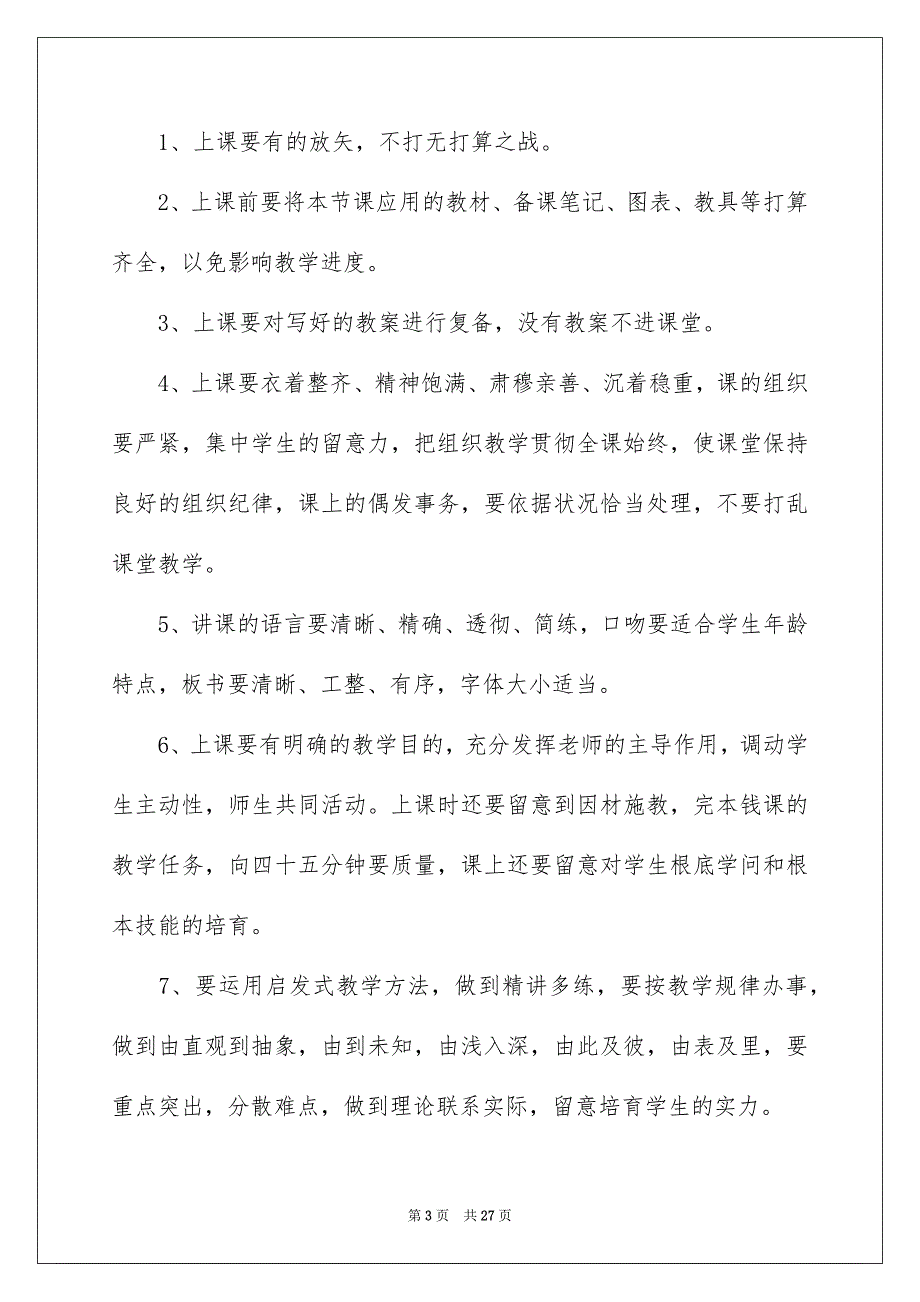 1、上课要有的放矢，不打无打算之战。
2、上课前要将本节课应用的教材、备课笔记、图表、教具等打算
齐全，以免影响教学进度。
3、上课要对写好的教案进行复备，没有教案不进课堂。
4、上课要衣着整齐、精神饱满、肃穆亲善、沉着稳重，课的组织
要严紧，集中学生的留意力，把组织教学贯彻全课始终，使课堂保持
良好的组织纪律，课上的偶发事务，要依据状况恰当处理，不要打乱
课堂教学。
5、讲课的语言要清晰、精确、透彻、简练，口吻要适合学生年龄
特点，板书要清晰、工整、有序，字体大小适当。
6、上课要有明确的教学目的，充分发挥老师的主导作用，调动学
生主动性，师生共同活动。上课时还要留意到因材施教，完本钱课的
教学任务，向四十五分钟要质量，课上还要留意对学生根底学问和根
本技能的培育。
7、要运用启发式教学方法，做到精讲多练，要按教学规律办事，
做到由直观到抽象，由到未知，由浅入深，由此及彼，由表及里，要
重点突出，分散难点，做到理论联系实际，留意培育学生的实力。
第 3 页 共 27 页